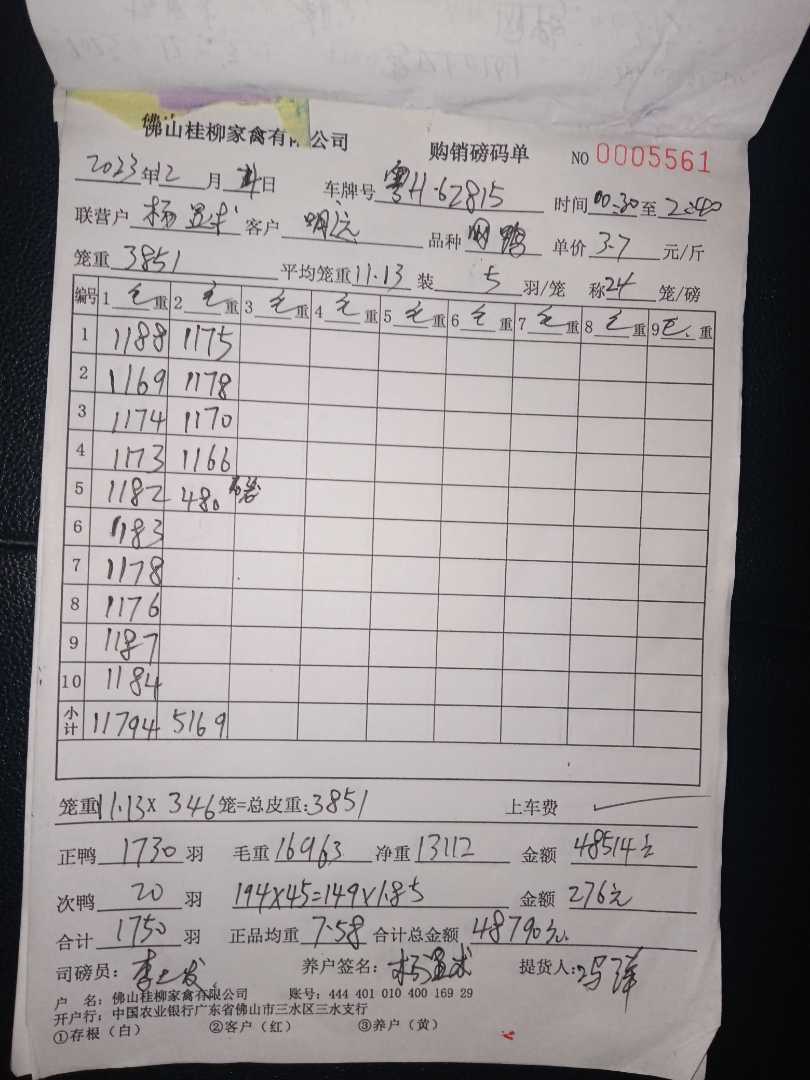 佛山桂柳家禽有限公司 购销磅码单 NO 0005561
2023年12月4日 车牌号 粤H·62815 时间00:30至2:40
联营户 杨显球 客户 明远 品种 鸭 单价 3.7 元/斤
笼重 3851 平均笼重11.13 装 5 羽/笼 称24笼/磅
编号 1毛重 2毛重 3毛重 4毛重 5毛重 6毛重 7毛重 8毛重 9毛重
1 1188 1175
2 1169 1178
3 1174 1170
4 1173 1166
5 1182 480
6 1183
7 1178
8 1176
9 1187
10 1184
小计 11794 5169
笼重11.13×346笼=总皮重:3851 上车费
正鸭 1730 羽 毛重16963 净重13112 金额 48514元
次鸭 20 羽 194×45=149×1.85 金额 276元
合计 1750 羽 正品均重 7.58 合计总金额 48790元.
司磅员: 养户签名: 杨显球 提货人: 冯
户 名: 佛山桂柳家禽有限公司 账号: 444 401 010 400 169 29
开户行: 中国农业银行广东省佛山市三水区三水支行
①存根(白) ②客户(红) ③养户(黄)